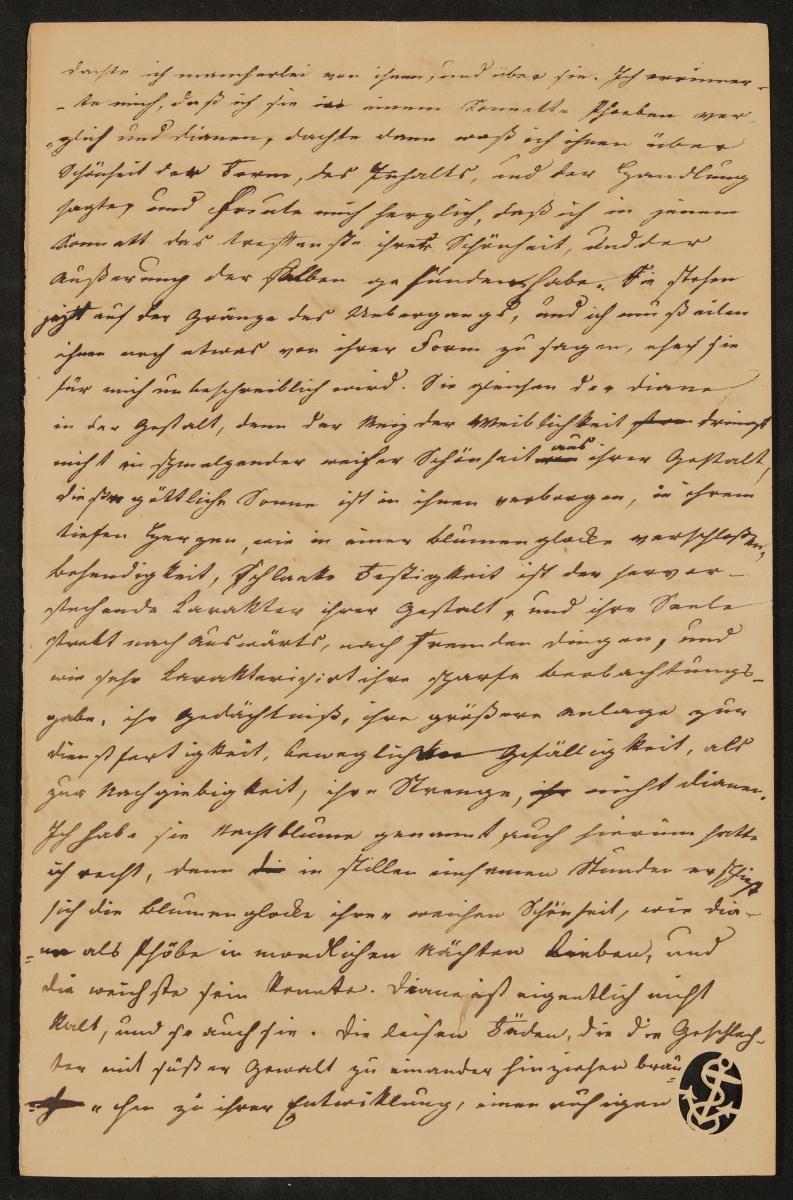 dachte ich mancherlei von ihnen, und über sie. Ich erinner-
-te mich, daß ich sie in einem Sonnette Phoeben ver-
"glich und Dianen, dachte dann was ich ihnen über
Schönheit der Form, des Inhalts, und der Handlung
sagte, und freute mich herzlich, daß ich in jenem
Sonnett das treffendste ihrer Schönheit, und der
Äußerung derselben gefunden habe. Sie stehen
jezt auf der Gränze des Uebergangs, und ich muß eilen
ihnen noch etwas von ihrer Form zu sagen, eh sie
für mich unbeschreiblich wird. Sie gleichen der Diane
in der Gestalt, denn der Reiz der Weiblichkeit dringt
nicht in schmelzender weicher Schönheit aus ihrer Gestalt,
diese göttliche Sonne ist in ihnen verborgen, in ihrem
tiefen Herzen, wie in einer Blumenglocke verschloßen,
Behendigkeit, Schlanke Festigkeit ist der hervor-
stechende Karakter ihrer Gestalt, und ihre Seele
strebt nach Auswärts, nach Fremden Dingen, und
wie sehr karakterisirt ihre scharfe Beobachtungs-
gabe, ihr Gedächtniß, ihre größere Anlage zur
Dienstfertigkeit, beweglichen Gefälligkeit, als
zur Nachgiebigkeit, ihre Strenge, nicht Dianen.
Ich habe sie Nachtblume genannt auch hierinn hatte
ich recht, denn in stillen einsamen Stunden erschließt
sich die Blumenglocke ihrer weichen Schönheit, wie Dia-
=ne als Phöbe in mondlichen Nächten lieben, und
die weichste sein konnte. Diane ist eigentlich nicht
kalt, und so auch sie. Die leisen Fäden, die die Geschlech-
ter mit süßer Gewalt zu einander hinziehen brau=
"chen zu ihrer Entwicklung, einen ruhigen